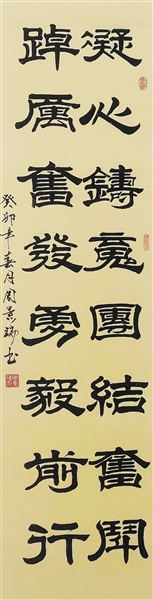 凝心鑄魂團結奮鬥
踔厲奮發勇毅前行
癸卯年春月周景瑞书